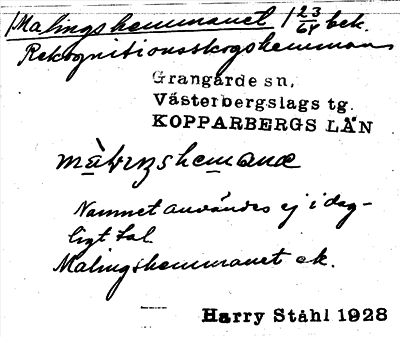 Malingshemmanet 1 23/64 bek.
Rekognitionsskogshemman
Grangärde sn,
Västerbergslags tg.
KOPPARBERGS LÄN
Namnet användes ej i dag-
ligt tal.
Malingshemmanet ek.
Harry Ståhl 1928